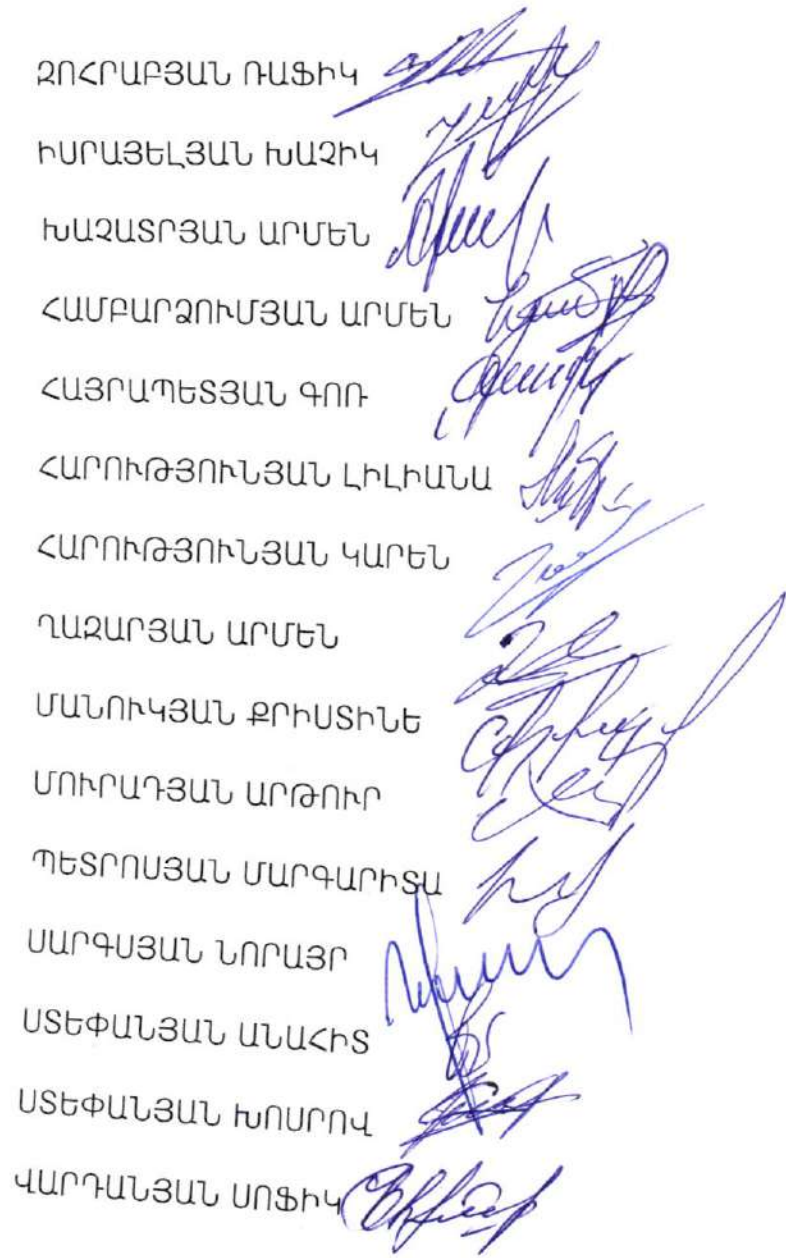 ԶՈՀՐԱԲՅԱՆ ՌԱՖԻԿ
ԻՍՐԱՅԵԼՅԱՆ ԽԱՉԻԿ
ԽԱՉԱՏՐՅԱՆ ԱՐՄԵՆ
ՀԱՄԲԱՐՁՈՒՄՅԱՆ ԱՐՄԵՆ
ՀԱՅՐԱՊԵՏՅԱՆ ԳՈՌ
ՀԱՐՈՒԹՅՈՒՆՅԱՆ ԼԻԼԻԱՆԱ
ՀԱՐՈՒԹՅՈՒՆՅԱՆ ԿԱՐԵՆ
ՂԱԶԱՐՅԱՆ ԱՐՄԵՆ
ՄԱՆՈՒԿՅԱՆ ՔՐԻՍՏԻՆԵ
ՄՈՒՐԱԴՅԱՆ ԱՐԹՈՒՐ
ՊԵՏՐՈՍՅԱՆ ՄԱՐԳԱՐԻՏԱ
ՍԱՐԳՍՅԱՆ ՆՈՐԱՅՐ
ՍՏԵՓԱՆՅԱՆ ԱՆԱՀԻՏ
ՍՏԵՓԱՆՅԱՆ ԽՈՍՐՈՎ
ՎԱՐԴԱՆՅԱՆ ՍՈՖԻԿ